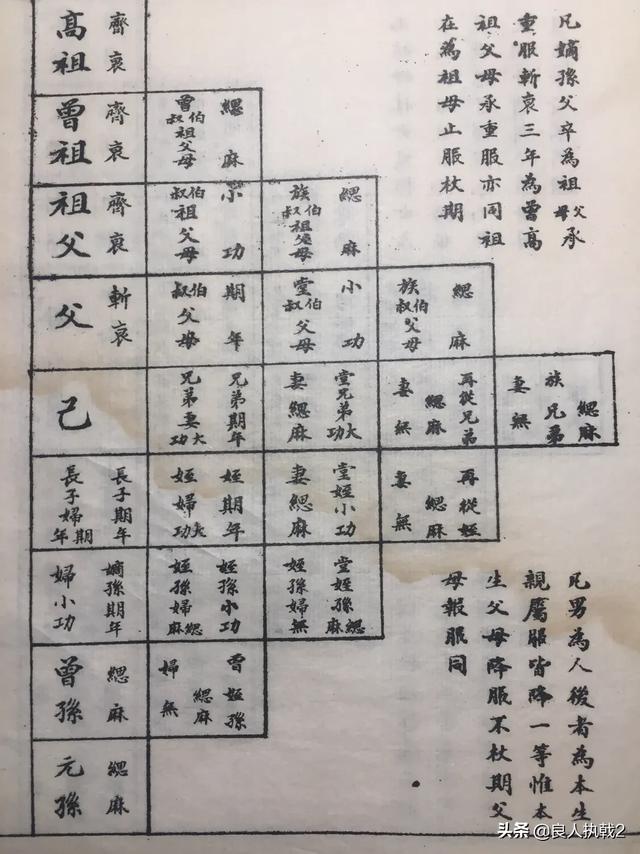 凡嫡孫父卒為祖父母承
重服斬衰三年為曾高
祖父母承重服亦同祖
在為祖母止服杖期
高祖
齊衰
曾祖
齊衰
曾伯叔祖父母
緦麻
祖父
齊衰
伯叔祖父母
小功
族伯叔祖父母
緦麻
父
斬衰
伯叔父母
期年
堂伯叔父母
小功
族伯叔父母
緦麻
己
兄弟期年
兄弟妻大功
堂兄弟大功
妻緦麻
再從兄弟
緦麻
妻無
族兄弟
緦麻
妻無
長子期年
長子婦期年
姪期年
姪婦大功
堂姪小功
妻緦麻
再從姪
緦麻
妻無
嫡孫期年
婦小功
姪孫小功
姪孫婦緦麻
堂姪孫緦麻
姪孫婦無
曾孫
緦麻
曾姪孫
緦麻
婦無
元孫
緦麻
凡男為人後者為本生
親屬服皆降一等惟本
生父母降服不杖期父
母報服同
头条 @良人执戟2